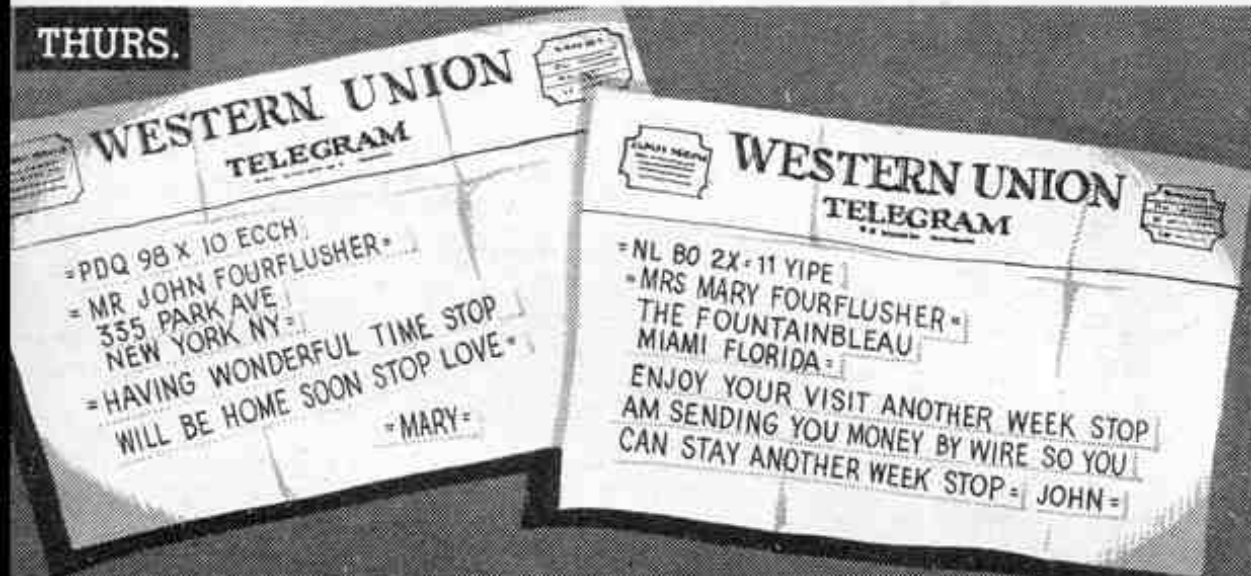 THURS.
WESTERN UNION
TELEGRAM
=PDQ 98 X 10 ECCH
=MR JOHN FOURFLUSHER=
335 PARK AVE
NEW YORK NY=
=HAVING WONDERFUL TIME STOP
WILL BE HOME SOON STOP LOVE=
=MARY=
WESTERN UNION
TELEGRAM
=NL BO 2X=11 YIPE
=MRS MARY FOURFLUSHER=
THE FOUNTAINBLEAU
MIAMI FLORIDA=
ENJOY YOUR VISIT ANOTHER WEEK STOP
AM SENDING YOU MONEY BY WIRE SO YOU
CAN STAY ANOTHER WEEK STOP= JOHN=